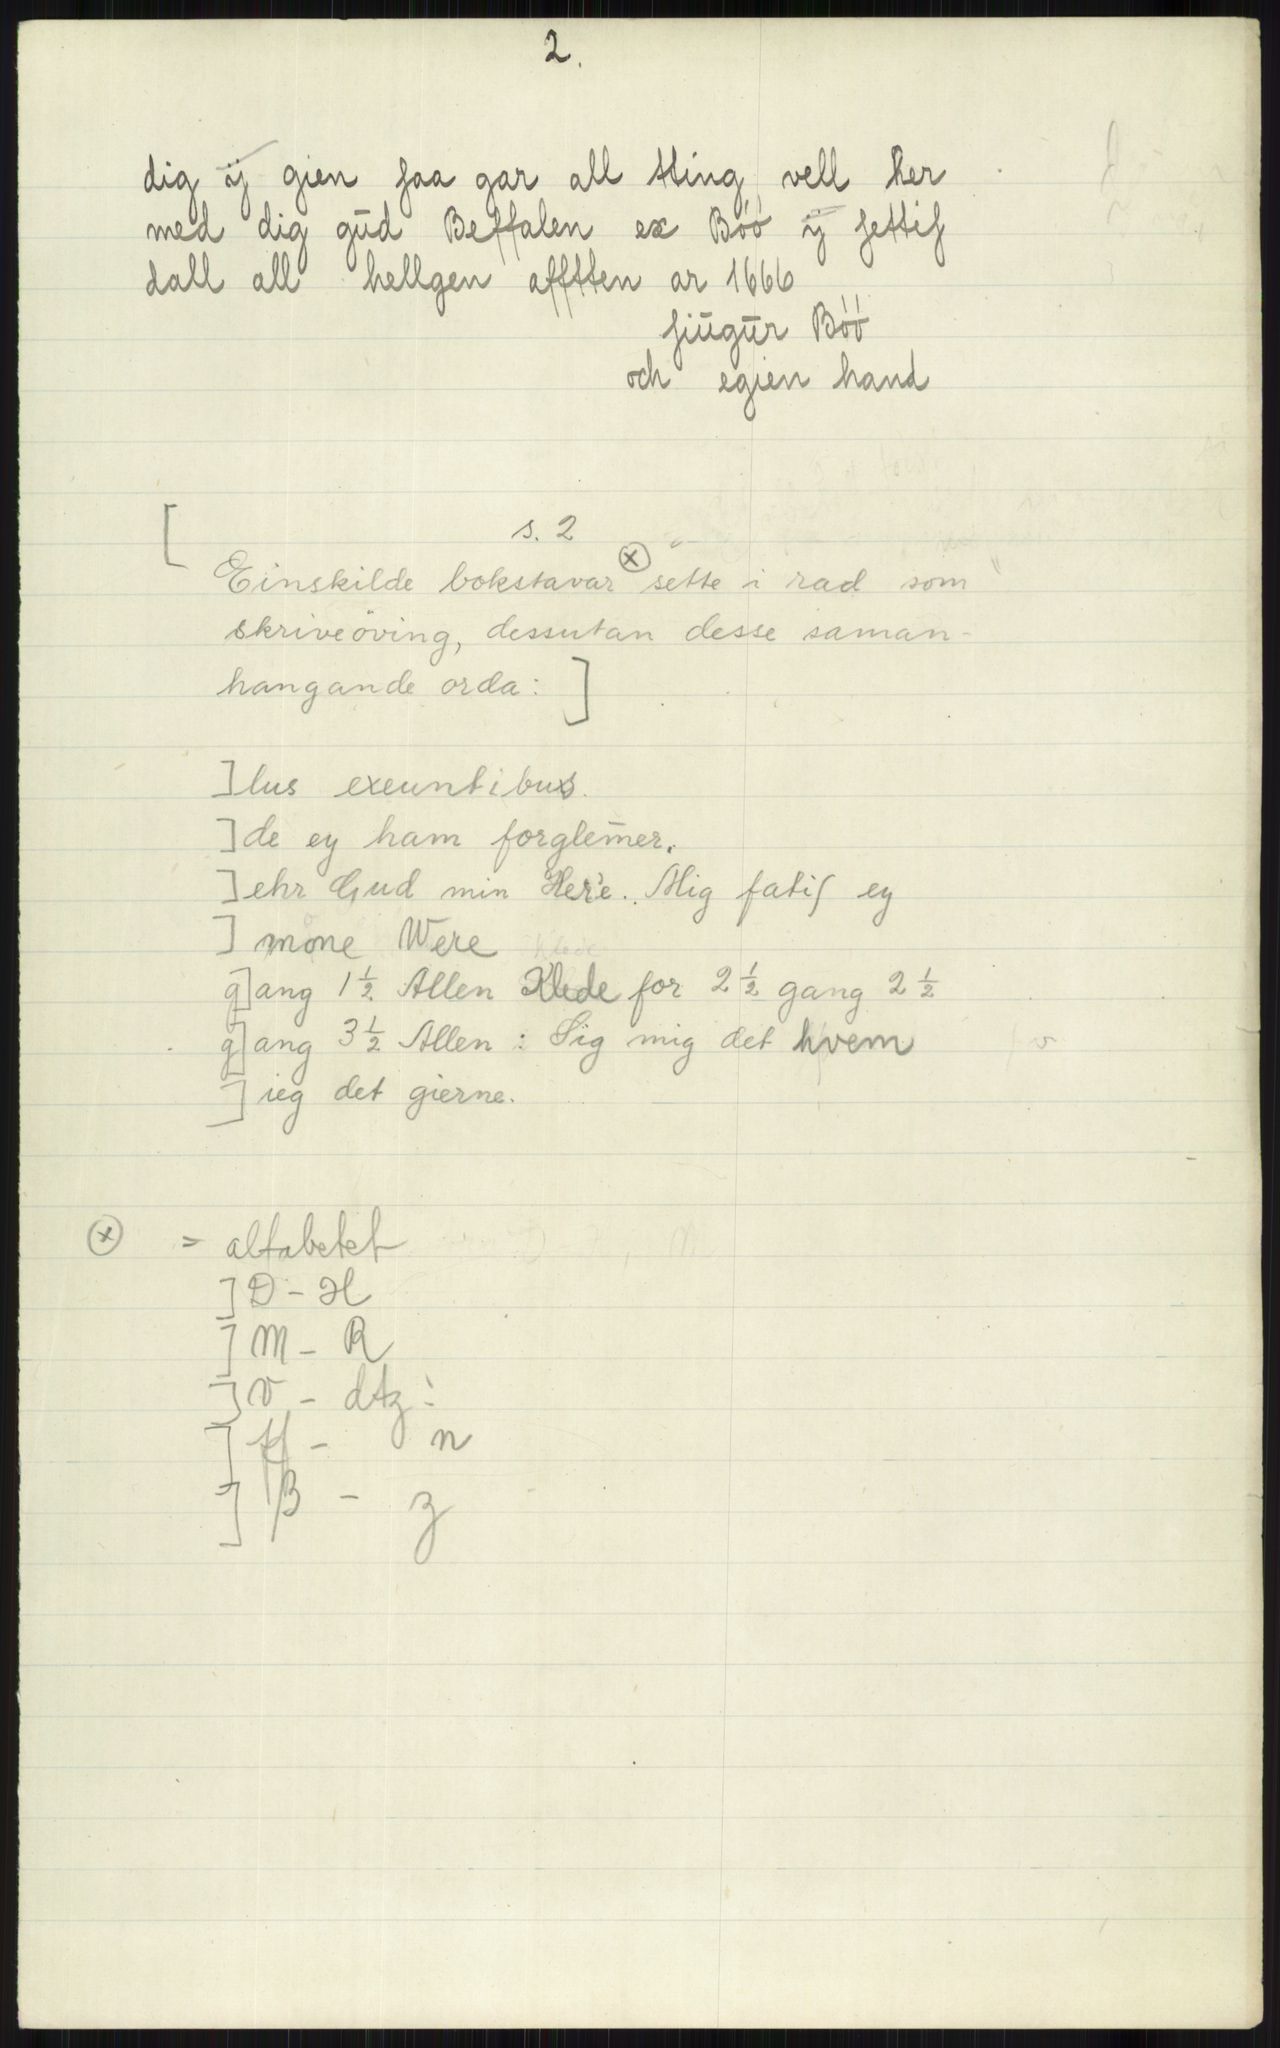 2.
dig ÿ gien ſaa gar all tting vell her
med dig gūd Beffalen ex Bóó ÿ ſettiſ
dall all hellgen afftten ar 1666
ſiūgūr Bóó
och egien hand
[ s. 2
Einskilde bokstavar ⊗ sette i rad som
skriveöving, dessutan desse saman-
hangande orda: ]
]lus exeuntibus.
]de ey ham forglem̄er.
]ehr Gud min Here. Mig fatiſ ey
] mone Were
g]ang 1½ Allen Klede for 2½ gang 2½
g]ang 3½ Allen : Sig mig det hvem
] ieg det gierne.
⊗ = alfabetet
]D - H
]M - R
]V - dtz:
] ff - n
] ß - z